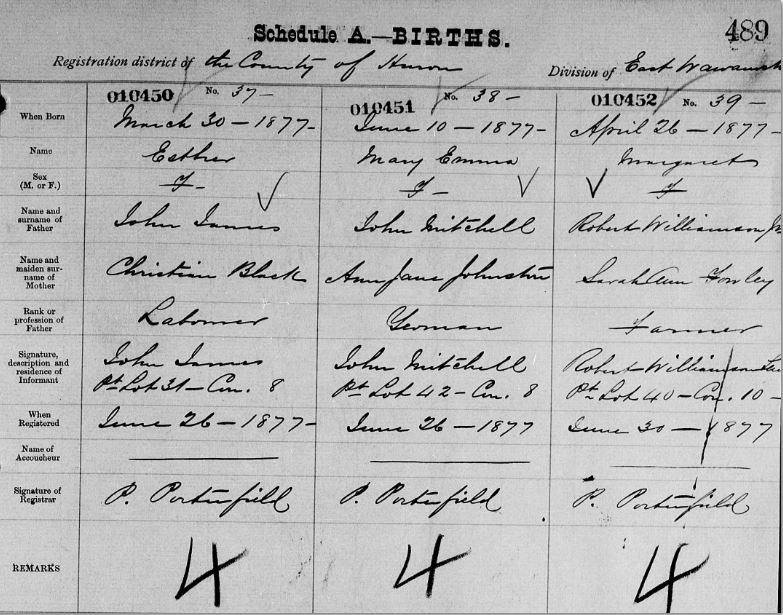 489
Schedule A.—BIRTHS.
Registration district of the County of Huron
Division of East Wawanosh
010450 No. 37-
010451 No. 38-
010452 No. 39-
When Born March 30-1877- June 10-1877- April 26-1877-
Name Esther Mary Emma Margaret
Sex (M. or F.) F- F- F
Name and surname of Father John James John Mitchell Robert Williamson Jr
Name and maiden surname of Mother Christian Black Ann Jane Johnston Sarah Ann Fowley
Rank or profession of Father Laborer Yeoman Farmer
Signature, description and residence of Informant John James John Mitchell Robert Williamson
Pt Lot 31-Con. 8 Pt Lot 42-Con. 8 Pt Lot 40-Con. 10-
When Registered June 26-1877- June 26-1877 June 30-1877
Name of Accoucheur
Signature of Registrar P. Porterfield P. Porterfield P. Porterfield
REMARKS 4 4 4